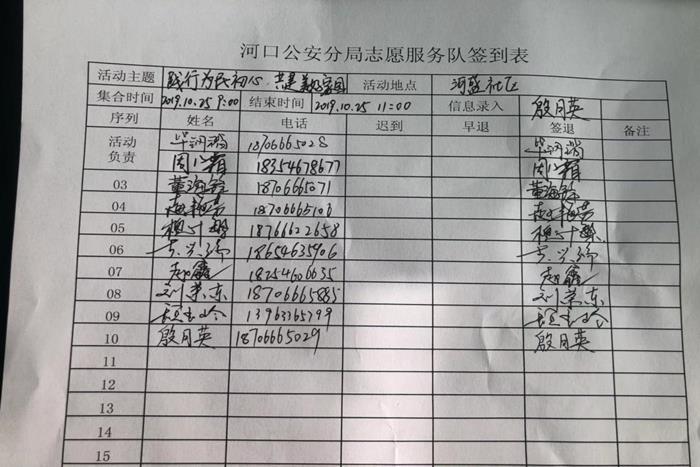 河口公安分局志愿服务队签到表
活动主题 践行为民初心、共建美好家园 活动地点 河盛社区
集合时间 2019.10.25 9:00 结束时间 2019.10.25 11:00 信息录入 殷月英
序列 姓名 电话 迟到 早退 签退 备注
活动 18706665028
负责 18354678677
03 18706665071
04 18706665106
05 18766622658
06 18654635906
07 赵鑫 18254606635 赵鑫
08 刘荣东 18706665885 刘荣东
09 13963365299
10 殷月英 18706665029 殷月英
11
12
13
14
15